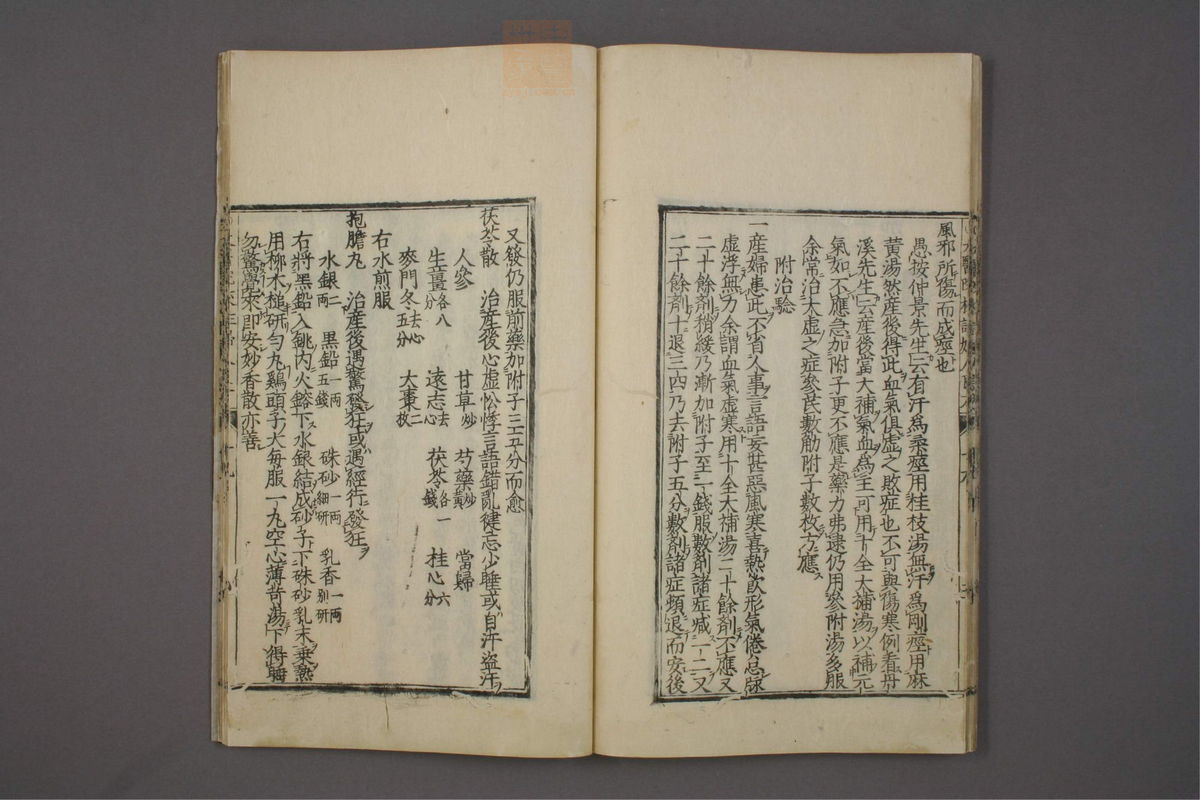 風邪所傷而成痙也
愚按仲景先生云有汗為柔痙用桂枝湯無汗為剛痙用麻
黄湯然産後得此血氣俱虚之敗症也不可與傷寒例看丹
溪先生云産後當大補氣血為主可用十全大補湯以補元
氣如不應急加附子更不應是藥力弗逮仍用參附湯多服
余常治大虚之症參芪數觔附子數枚方應
附治驗
一産婦患此不省人事言語妄甚惡風寒喜熱飲形氣倦怠脉
虚浮無力余謂血氣虚寒用十全大補湯二十餘剤不應又
二十餘剤稍緩乃漸加附子至一錢服數剤諸症减一二又
二十餘剤十退三四乃去附子五分數剤諸症頻退而安後
又發仍服前藥加附子三五分而愈
茯苓散　治産後心虚忪悸言語錯亂健忘少睡或自汗盗汗
人參　甘草炒　芍藥炒黄　當歸
生薑各八分　遠志去心　茯苓各一錢　桂心六分
麥門冬去心五分　大棗二枚
右水煎服
抱膽丸　治産後遇驚發狂或遇經行發狂
水銀二兩　黒鉛一兩五錢　硃砂一兩細研　乳香一兩別研
右將黒鉛入銚内火鎔下水銀結成砂子下硃砂乳末乗熱
用柳木槌研匀丸鷄頭子大毎服一丸空心薄荷湯下得睡
勿驚覺來即安妙香散亦善